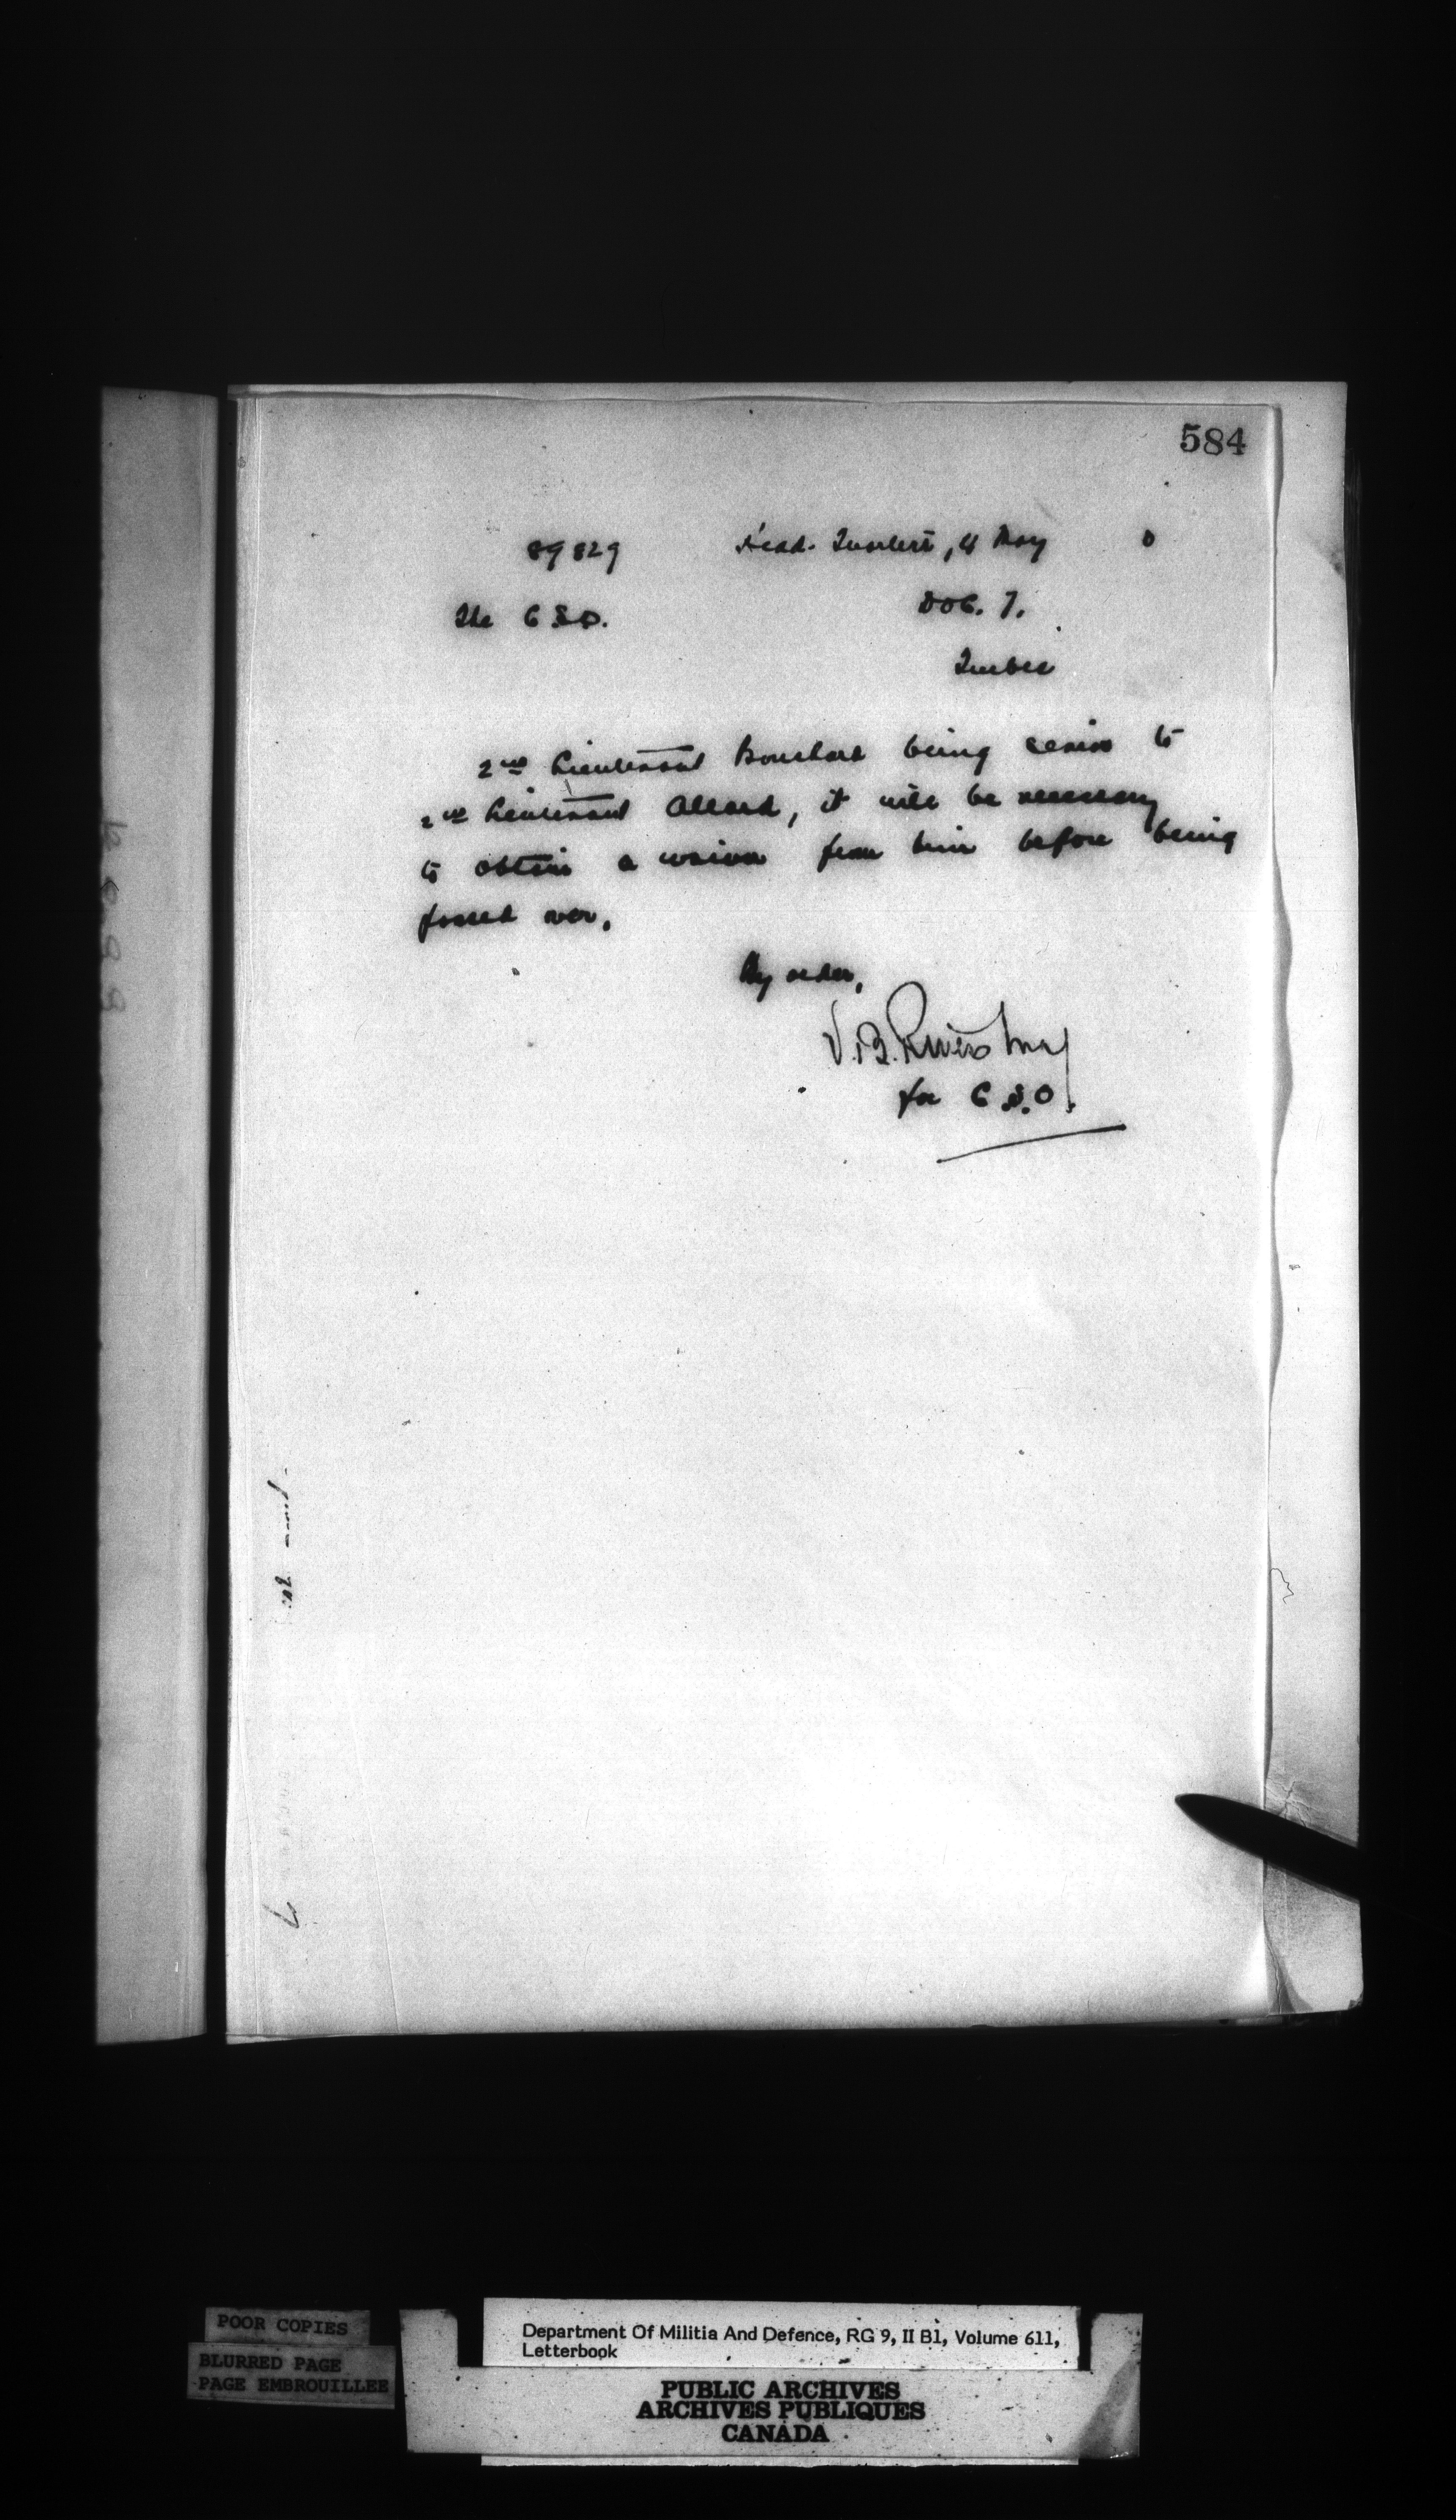 584
89829 Head Quarters, 4 May 0
The C.S.O. DOC. 7.
Quebec
2nd Lieutenant Bouchard being senior to
2nd Lieutenant Allard, it will be necessary
to obtain a waiver from him before being
passed over.
By order,
V.B. Rivers Maj
for C.S.O.
POOR COPIES
BLURRED PAGE
PAGE EMBROUILLEE
Department Of Militia And Defence, RG 9, II B1, Volume 611,
Letterbook
PUBLIC ARCHIVES
ARCHIVES PUBLIQUES
CANADA